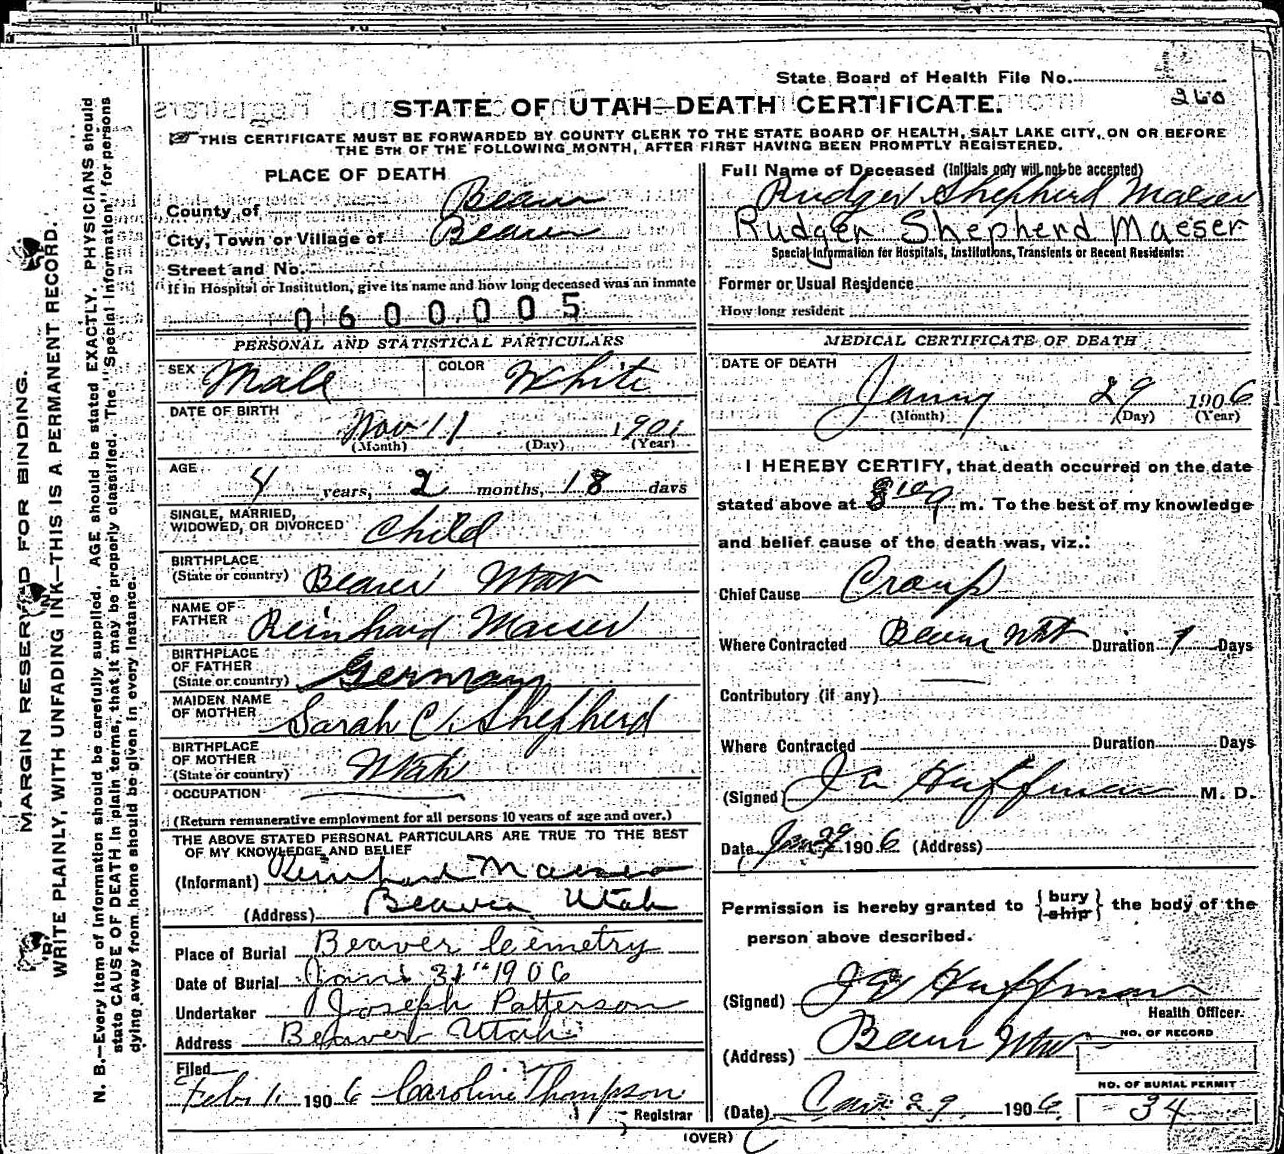 State Board of Health File No.
260
STATE OF UTAH—DEATH CERTIFICATE.
THIS CERTIFICATE MUST BE FORWARDED BY COUNTY CLERK TO THE STATE BOARD OF HEALTH, SALT LAKE CITY, ON OR BEFORE
THE 5TH OF THE FOLLOWING MONTH, AFTER FIRST HAVING BEEN PROMPTLY REGISTERED.
MARGIN RESERVED FOR BINDING.
WRITE PLAINLY, WITH UNFADING INK—THIS IS A PERMANENT RECORD.
N. B.—Every item of information should be carefully supplied. AGE should be stated EXACTLY. PHYSICIANS should
state CAUSE OF DEATH in plain terms, that it may be properly classified. The "Special Information" for persons
dying away from home should be given in every instance.
PLACE OF DEATH
County of Beaver
City, Town or Village of Beaver
Street and No.
If in Hospital or Institution, give its name and how long deceased was an inmate
0600005
PERSONAL AND STATISTICAL PARTICULARS
SEX Male COLOR White
DATE OF BIRTH
Nov 11 1901
(Month) (Day) (Year)
AGE
4 years, 2 months, 18 days
SINGLE, MARRIED,
WIDOWED, OR DIVORCED Child
BIRTHPLACE
(State or country) Beaver Utah
NAME OF
FATHER Reinhard Maeser
BIRTHPLACE
OF FATHER
(State or country) Germany
MAIDEN NAME
OF MOTHER Sarah C. Shepherd
BIRTHPLACE
OF MOTHER
(State or country) Utah
OCCUPATION
(Return remunerative employment for all persons 10 years of age and over.)
THE ABOVE STATED PERSONAL PARTICULARS ARE TRUE TO THE BEST
OF MY KNOWLEDGE AND BELIEF
(Informant) Reinhard Maeser
(Address) Beaver Utah
Place of Burial Beaver Cemetry
Date of Burial Jan. 31" 1906
Undertaker Joseph Patterson
Address Beaver Utah
Filed
Feb. 1. 1906 Caroline Thompson
Registrar
Full Name of Deceased (Initials only will not be accepted)
Rudger Shepherd Maeser
Rudger Shepherd Maeser
Special Information for Hospitals, Institutions, Transients or Recent Residents:
Former or Usual Residence
How long resident
MEDICAL CERTIFICATE OF DEATH
DATE OF DEATH
Janury 29 1906
(Month) (Day) (Year)
I HEREBY CERTIFY, that death occurred on the date
stated above at m. To the best of my knowledge
and belief cause of the death was, viz.:
Chief Cause Croup
Where Contracted Beaver Utah Duration Days
Contributory (if any)
Where Contracted Duration Days
(Signed) Huffman M. D.
Date Jan 29 1906 (Address)
Permission is hereby granted to {bury ship} the body of the
person above described.
(Signed) Huffman
Health Officer.
(Address) Beaver Utah
NO. OF RECORD
NO. OF BURIAL PERMIT
34
(Date) Jan 29 1906
(OVER)